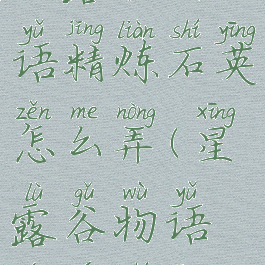 yǔ jīng liàn shí yīng
语精炼石英
zěn me nòng xīng
怎么弄(星
lù gǔ wù yǔ
露谷物语